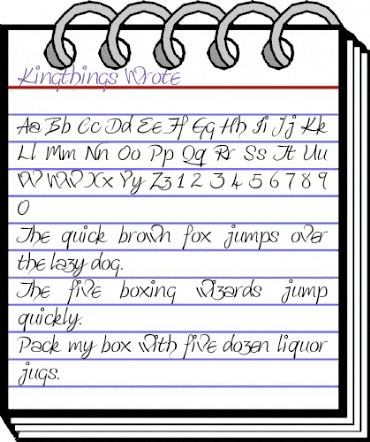 Kingthings Wrote
Aa Bb Cc Dd Ee Ff Gg Hh Ii Jj Kk
Ll Mm Nn Oo Pp Qq Rr Ss Tt Uu
Vv Ww Xx Yy Zz 1 2 3 4 5 6 7 8 9
0
The quick brown fox jumps over
the lazy dog.
The five boxing wizards jump
quickly.
Pack my box with five dozen liquor
jugs.